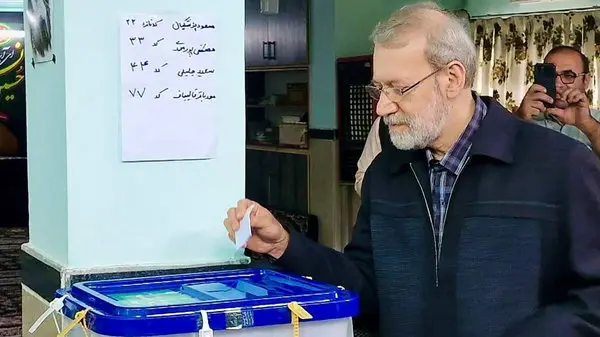 مسعود پزشکیان کد نامزد ۲۲
مصطفی پورمحمدی کد ۳۳
سعید جلیلی کد ۴۴
محمدباقر قالیباف کد ۷۷